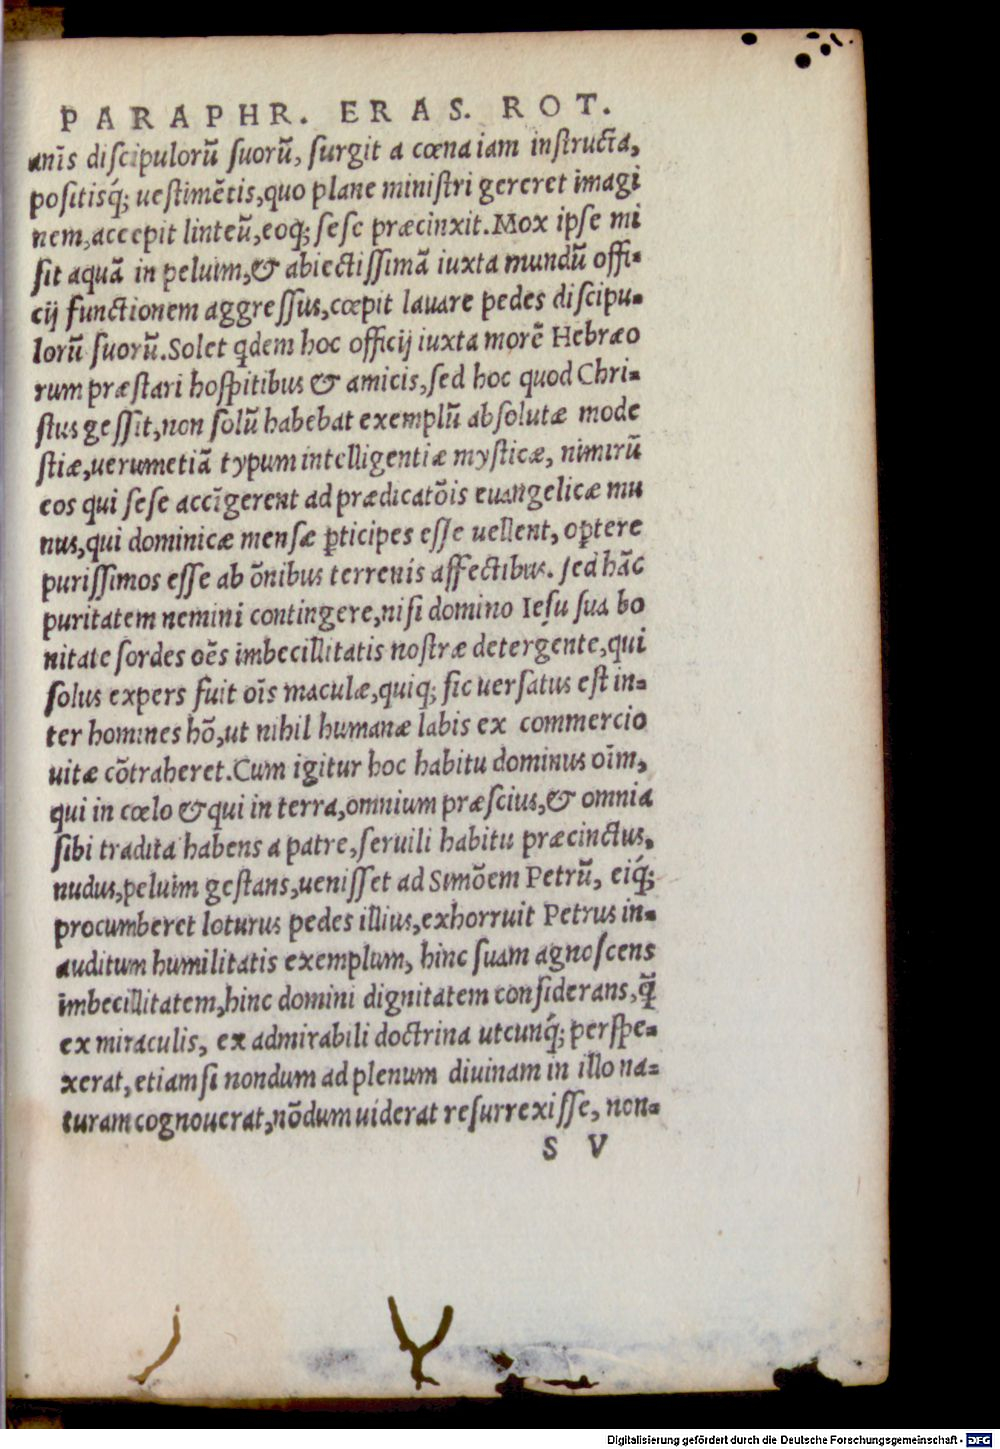 PARAPHR. ERAS. ROT.
anīs diſcipulorū ſuorū, ſurgit a cœna iam inſtructa,
poſitisq́; ueſtimētis, quo plane miniſtri gereret imagi
nem, accepit linteū, eoq; ſeſe præcinxit. Mox ipſe mi
ſit aquā in peluim, & abiectiſſimā iuxta mundū offi-
cij functionem aggreſſus, cœpit lauare pedes diſcipu-
lorū ſuorū. Solet q̇dem hoc officij iuxta morē Hebræo
rum præſtari hoſpitibus & amicis, ſed hoc quod Chri-
ſtus geſſit, non ſolū habebat exemplū abſolutæ mode
ſtiæ, uerumetiā typum intelligentiæ myſticæ, nimirū
eos qui ſeſe accīgerent ad prædicatōis euangelicæ mu
nus, qui dominicæ menſæ ꝑticipes eſſe uellent, oꝑtere
puriſſimos eſſe ab ōnibus terrenis affectibus. ſed hāc
puritatem nemini contingere, niſi domino Ieſu ſua bo
nitate ſordes oēs imbecillitatis noſtræ detergente, qui
ſolus expers fuit oīs maculæ, quiq; ſic uerſatus eſt in-
ter homines hō, ut nihil humanæ labis ex commercio
uitæ cōtraheret. Cum igitur hoc habitu dominus oīm,
qui in cœlo & qui in terra, omnium præſcius, & omnia
ſibi tradita habens a patre, ſeruili habitu præcinctus,
nudus, peluim geſtans, ueniſſet ad Simōem Petrū, eiq́;
procumberet loturus pedes illius, exhorruit Petrus in-
auditum humilitatis exemplum, hinc ſuam agnoſcens
imbecillitatem, hinc domini dignitatem conſiderans, q̃
ex miraculis, ex admirabili doctrina utcunq́; perſpe-
xerat, etiamſi nondum ad plenum diuinam in illo na-
turam cognouerat, nōdum uiderat reſurrexiſſe, non-
S V
Digitalisierung gefördert durch die Deutsche Forschungsgemeinschaft - DFG